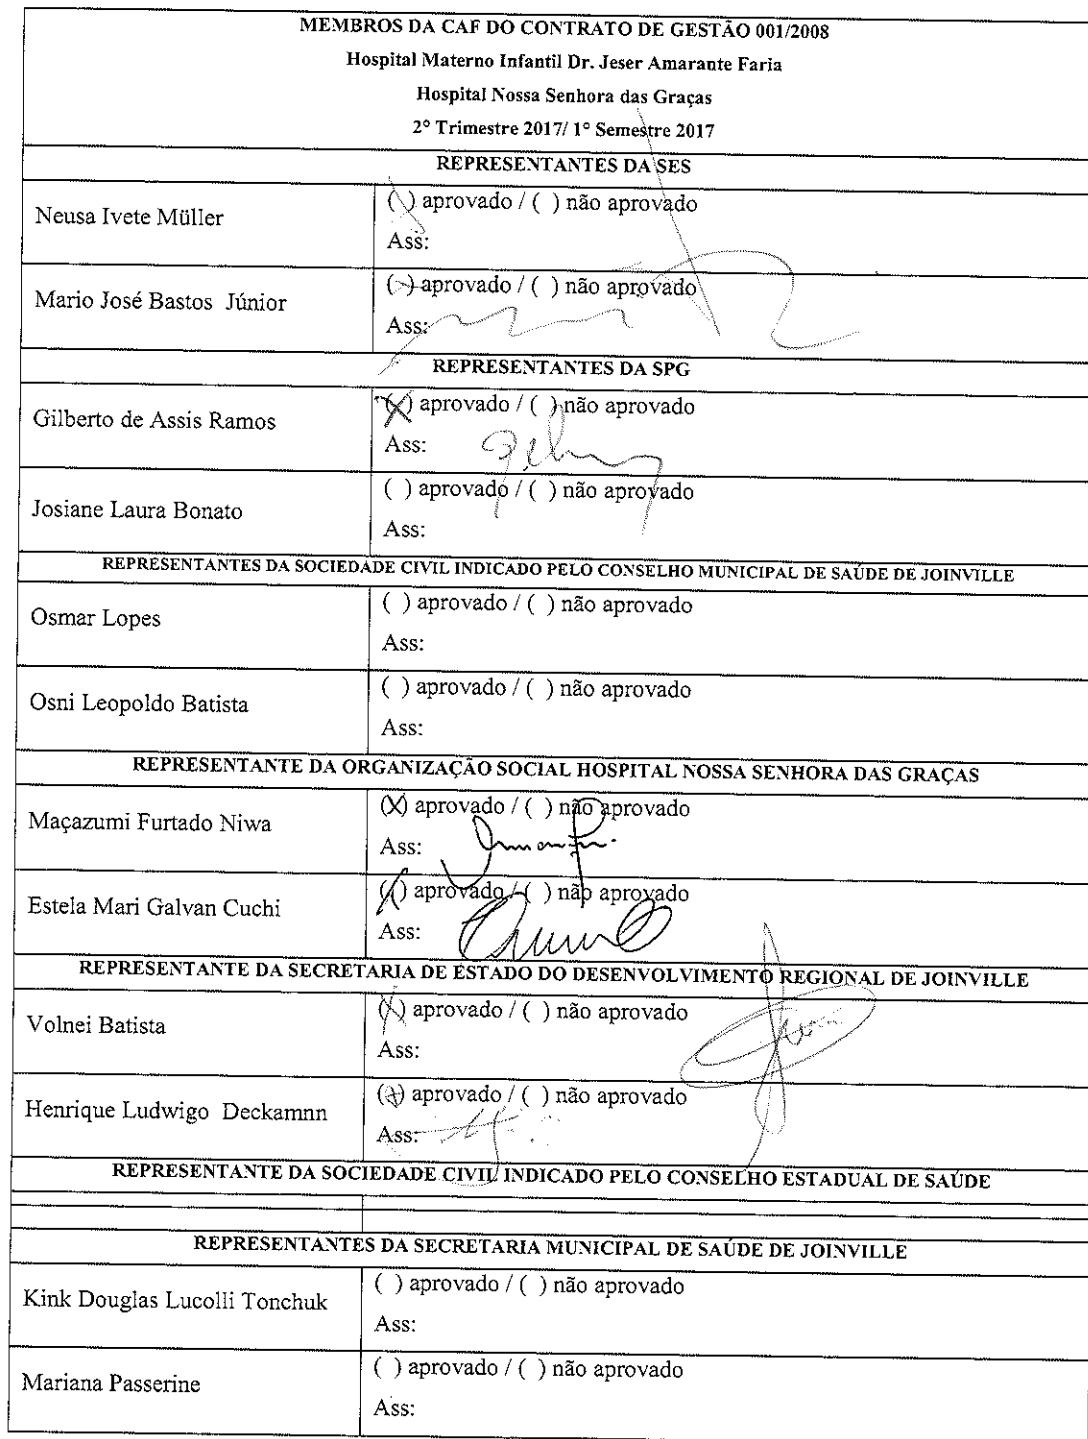 MEMBROS DA CAF DO CONTRATO DE GESTÃO 001/2008
Hospital Materno Infantil Dr. Jeser Amarante Faria
Hospital Nossa Senhora das Graças
2º Trimestre 2017/ 1º Semestre 2017
REPRESENTANTES DA SES
Neusa Ivete Müller
(X) aprovado / ( ) não aprovado
Ass:
Mario José Bastos Júnior
(X) aprovado / ( ) não aprovado
Ass:
REPRESENTANTES DA SPG
Gilberto de Assis Ramos
(X) aprovado / ( ) não aprovado
Ass:
Josiane Laura Bonato
( ) aprovado / ( ) não aprovado
Ass:
REPRESENTANTES DA SOCIEDADE CIVIL INDICADO PELO CONSELHO MUNICIPAL DE SAÚDE DE JOINVILLE
Osmar Lopes
( ) aprovado / ( ) não aprovado
Ass:
Osni Leopoldo Batista
( ) aprovado / ( ) não aprovado
Ass:
REPRESENTANTE DA ORGANIZAÇÃO SOCIAL HOSPITAL NOSSA SENHORA DAS GRAÇAS
Maçazumi Furtado Niwa
(X) aprovado / ( ) não aprovado
Ass:
Estela Mari Galvan Cuchi
(X) aprovado / ( ) não aprovado
Ass:
REPRESENTANTE DA SECRETARIA DE ESTADO DO DESENVOLVIMENTO REGIONAL DE JOINVILLE
Volnei Batista
(X) aprovado / ( ) não aprovado
Ass:
Henrique Ludwigo Deckamnn
(X) aprovado / ( ) não aprovado
Ass:
REPRESENTANTE DA SOCIEDADE CIVIL INDICADO PELO CONSELHO ESTADUAL DE SAÚDE
REPRESENTANTES DA SECRETARIA MUNICIPAL DE SAÚDE DE JOINVILLE
Kink Douglas Lucolli Tonchuk
( ) aprovado / ( ) não aprovado
Ass:
Mariana Passerine
( ) aprovado / ( ) não aprovado
Ass: